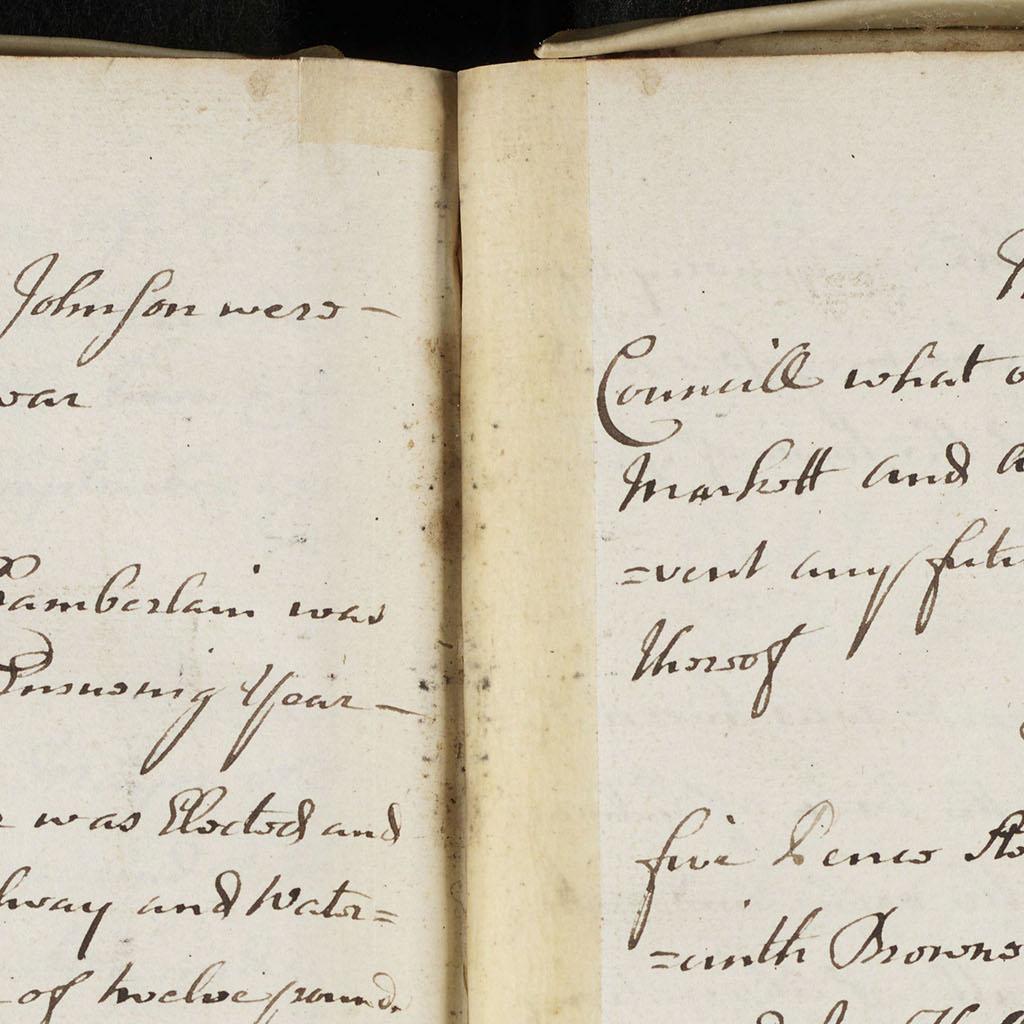 Johnson were -
Chamberlain was
Ensueing Year -
was Elected and
and Water=
of twelve pound
Councill what
Markett and
=vent any
thereof
five Pence
=cinth Browne